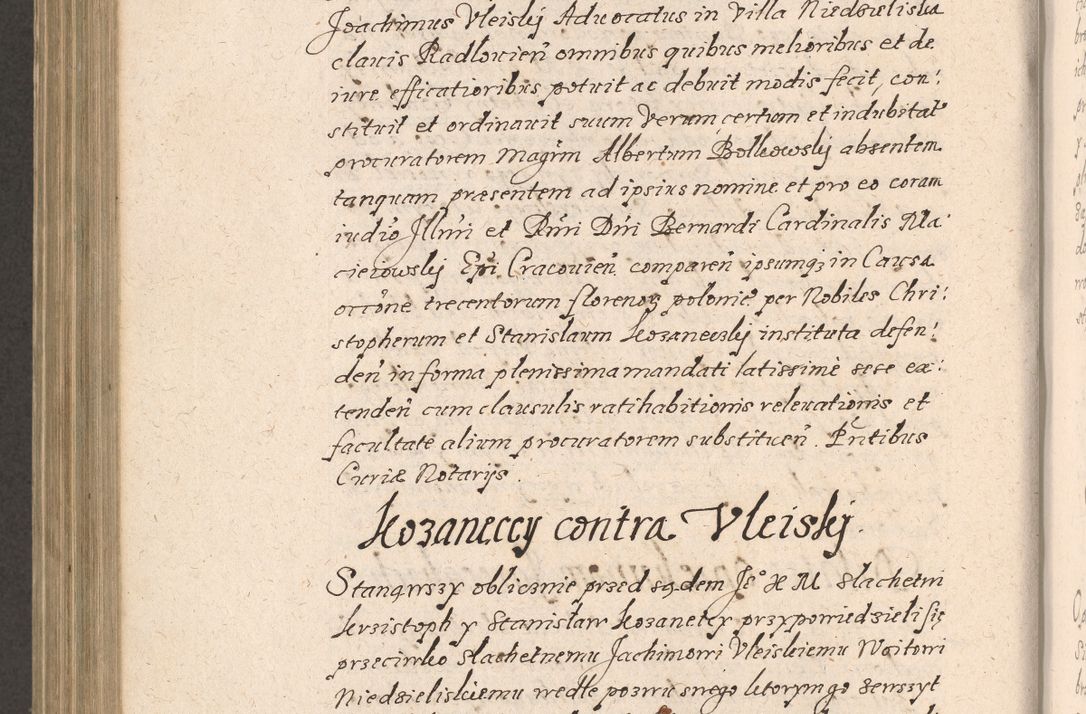 Joachimus Vleisky Aduocatus in Villa Niedzieliska
clauis Radlouien̄ omnibus quibus melioribus et de
iure efficatioribus potuit ac debuit modis fecit, con:
stituit et ordinauit suum verum, certum et indubitat̄
procuratorem Magīm Albertum Bolkowsky absentem
tanquam præsentem ad ipsius nomine et pro eo coram
iudio Jllm̄i et Rm̄i Dn̄i Bernardi Cardinalis Ma
cieiowsky Ep̄i Cracouien̄ comparen̄ ipsumq₃ in Causa
occōne trecentorum florenoꝝ polonic̄ per Nobiles Chri:
stopherum et Stanislaum Kozanecky instituta defen:
den̄ in forma plenissima mandati latissimè sese ex:
tenden̄ cum clausulis ratihabitionis releuationis et
facultate alium procuratorem substituen̄. Pn̄tibus
Curiæ Notarijs.
Kozaneccy contra Vleisky.
Stanąwszy oblicznie przed sądem Je° X M slachetni
Krzistoph y Stanisław Kozaneccy przypowiedzieli się
przeciwko slachetnemu Jachimowi Vleiskiemu Woitowi
Niedzieliskiemu wedłe pozwu swego ktorym go zeszyt